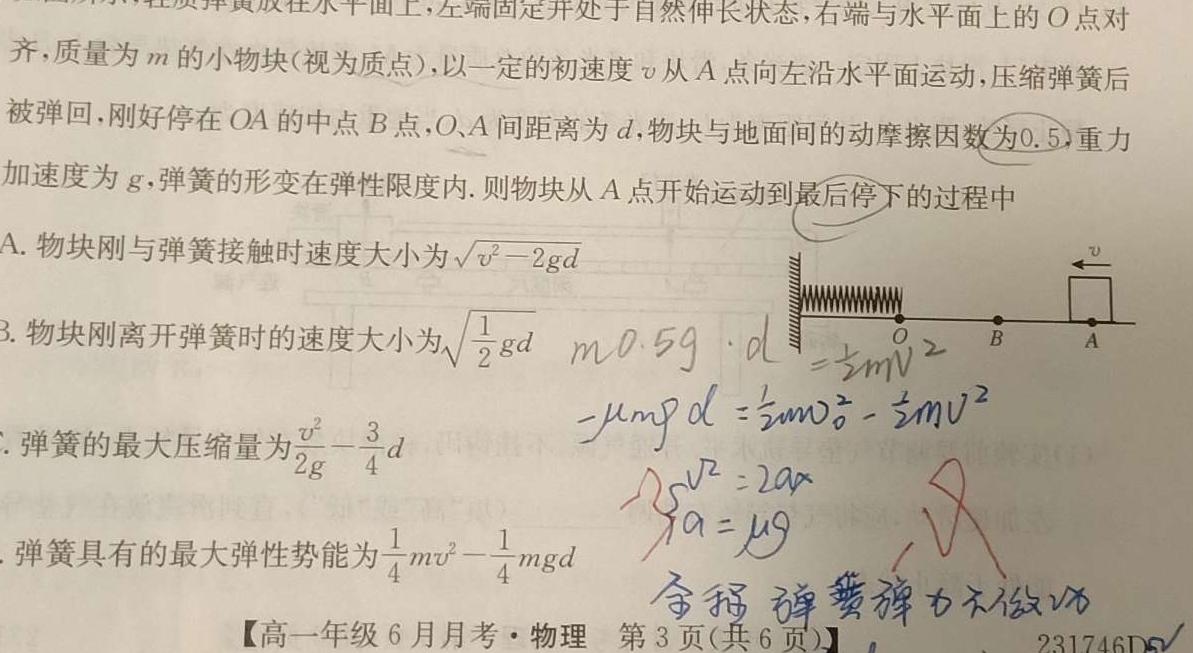 轻质弹簧放在水平面上,左端固定并处于自然伸长状态,右端与水平面上的O点对
齐,质量为m的小物块(视为质点),以一定的初速度v从A点向左沿水平面运动,压缩弹簧后
被弹回,刚好停在OA的中点B点,O、A间距离为d,物块与地面间的动摩擦因数为0.5,重力
加速度为g,弹簧的形变在弹性限度内.则物块从A点开始运动到最后停下的过程中
A. 物块刚与弹簧接触时速度大小为√(v²-2gd)
v
B. 物块刚离开弹簧时的速度大小为√(1/2 gd)
O B A
m0.5g·d = ½mv²
-μmgd = ½mv₀² - ½mv²
. 弹簧的最大压缩量为v²/2g - 3/4 d
v² = 2ax
a = μg
. 弹簧具有的最大弹性势能为1/4 mv² - 1/4 mgd
全程 弹簧弹力不做功
【高一年级6月月考·物理 第3页(共6页)】
231746D